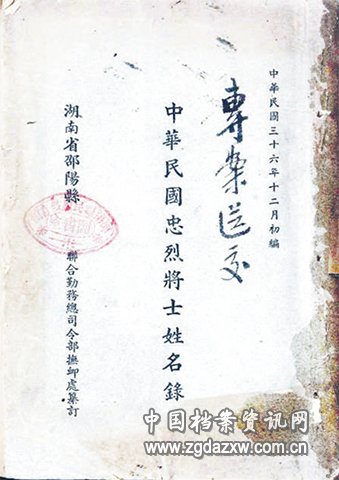 中華民國三十六年十二月初編
專案送交
中華民國忠烈將士姓名錄
湖南省邵陽縣
聯合勤務總司令部撫卹處纂訂
中国档案资讯网
www.zgdazxw.com.cn